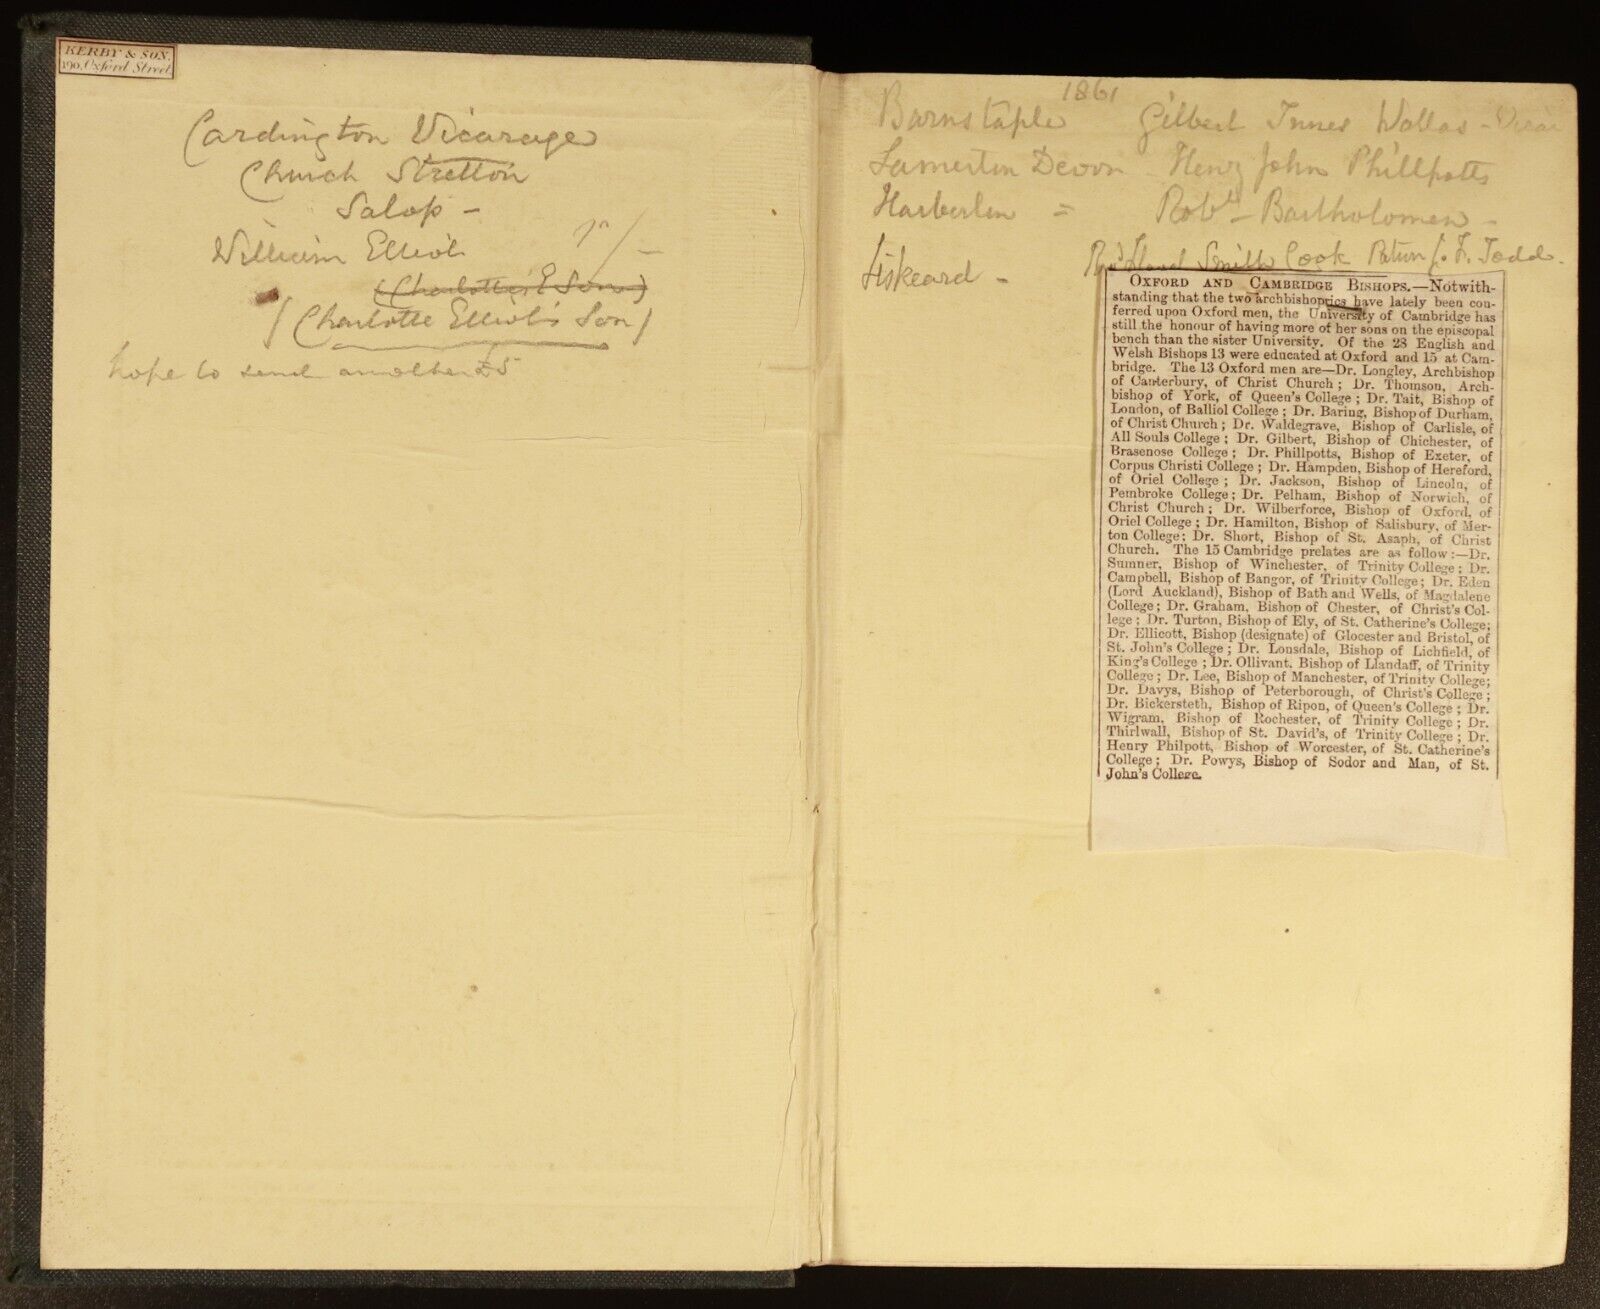 KERBY & SON,
190, Oxford Street
Cardington Vicarage
Church Stretton
Salop -
William Elliot
(Charlotte E Son)
(Charlotte Elliot's Son)
hope to send another £5
1861
Barnstaple Gilbert Innes Wallas - Vicar
Lamerton Devon Henry John Phillpotts
Harberton = Robt - Bartholomew -
Liskeard - Smith Cook Patron J. F. Todd.
OXFORD AND CAMBRIDGE BISHOPS.—Notwith-
standing that the two archbishoprics have lately been con-
ferred upon Oxford men, the University of Cambridge has
still the honour of having more of her sons on the episcopal
bench than the sister University. Of the 28 English and
Welsh Bishops 13 were educated at Oxford and 15 at Cam-
bridge. The 13 Oxford men are—Dr. Longley, Archbishop
of Canterbury, of Christ Church; Dr. Thomson, Arch-
bishop of York, of Queen's College; Dr. Tait, Bishop of
London, of Balliol College; Dr. Baring, Bishop of Durham,
of Christ Church; Dr. Waldegrave, Bishop of Carlisle, of
All Souls College; Dr. Gilbert, Bishop of Chichester, of
Brasenose College; Dr. Phillpotts, Bishop of Exeter, of
Corpus Christi College; Dr. Hampden, Bishop of Hereford,
of Oriel College; Dr. Jackson, Bishop of Lincoln, of
Pembroke College; Dr. Pelham, Bishop of Norwich, of
Christ Church; Dr. Wilberforce, Bishop of Oxford, of
Oriel College; Dr. Hamilton, Bishop of Salisbury, of Mer-
ton College; Dr. Short, Bishop of St. Asaph, of Christ
Church. The 15 Cambridge prelates are as follow:—Dr.
Sumner, Bishop of Winchester, of Trinity College; Dr.
Campbell, Bishop of Bangor, of Trinity College; Dr. Eden
(Lord Auckland), Bishop of Bath and Wells, of Magdalene
College; Dr. Graham, Bishop of Chester, of Christ's Col-
lege; Dr. Turton, Bishop of Ely, of St. Catherine's College;
Dr. Ellicott, Bishop (designate) of Glocester and Bristol, of
St. John's College; Dr. Lonsdale, Bishop of Lichfield, of
King's College; Dr. Ollivant, Bishop of Llandaff, of Trinity
College; Dr. Lee, Bishop of Manchester, of Trinity College;
Dr. Davys, Bishop of Peterborough, of Christ's College;
Dr. Bickersteth, Bishop of Ripon, of Queen's College; Dr.
Wigram, Bishop of Rochester, of Trinity College; Dr.
Thirlwall, Bishop of St. David's, of Trinity College; Dr.
Henry Philpott, Bishop of Worcester, of St. Catherine's
College; Dr. Powys, Bishop of Sodor and Man, of St.
John's College.